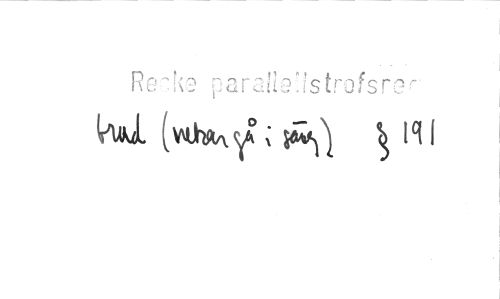 Recke parallellstrofsreg
brud (vebar gå i säng) § 191